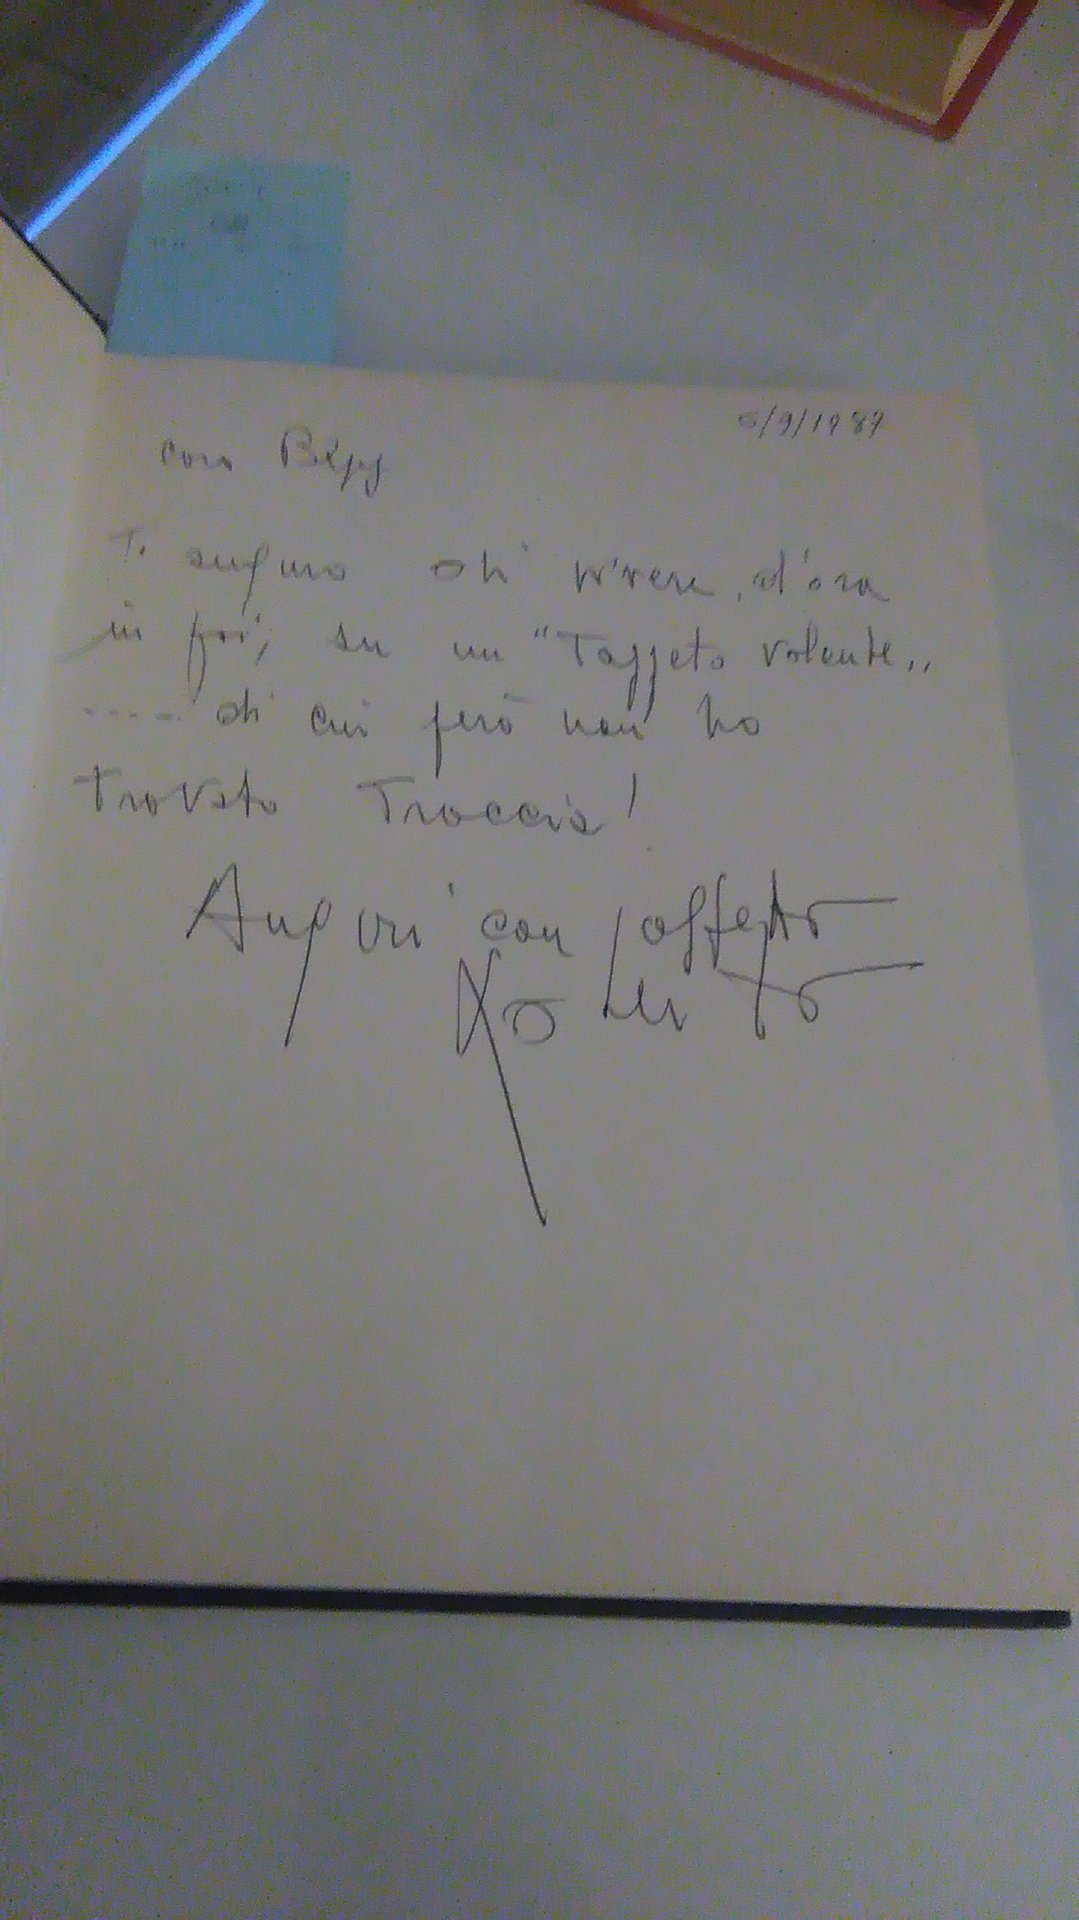 6/9/1989
caro Bepy
Ti auguro di vivere, d'ora
in poi, su un "Tappeto volante"
----- di cui però non ho
trovato Traccia!
Auguri con affetto
Roberto